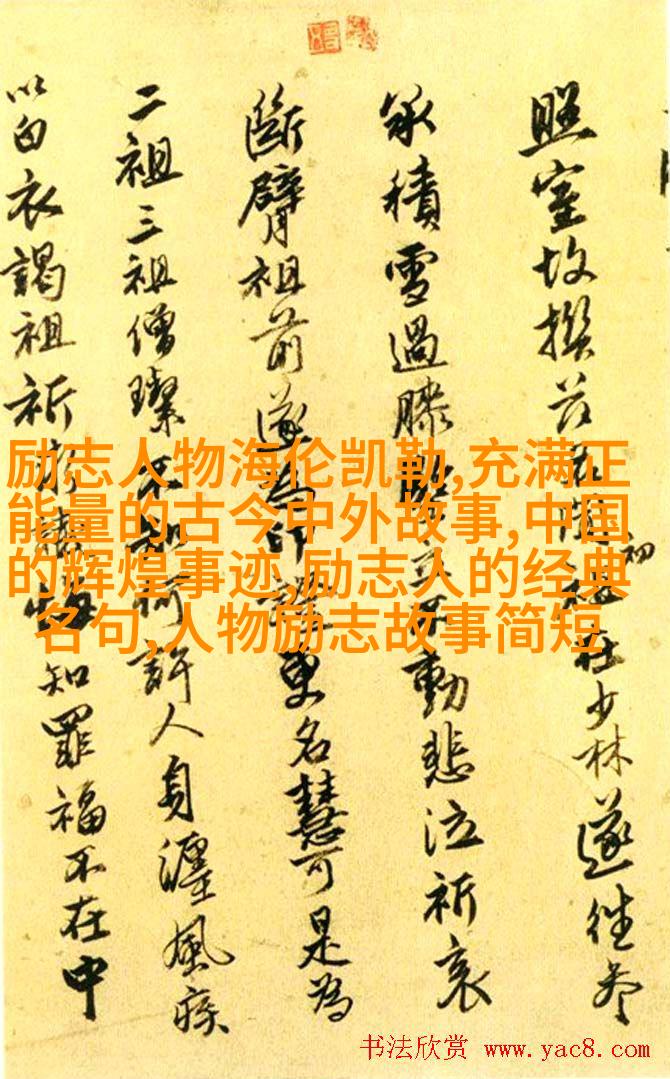 照室故撰初祖在少林遂往參
承積雪過膝立不動悲泣祈哀
斷臂祖前遂為印證更名慧可是為
二祖三祖僧璨不知何許人身纏風疾
以白衣謁祖祈悔知罪福不在中
励志人物海伦凯勒,充满正
能量的古今中外故事,中国
的辉煌事迹,励志人的经典
名句,人物励志故事简短
书法欣赏 www.yac8.com